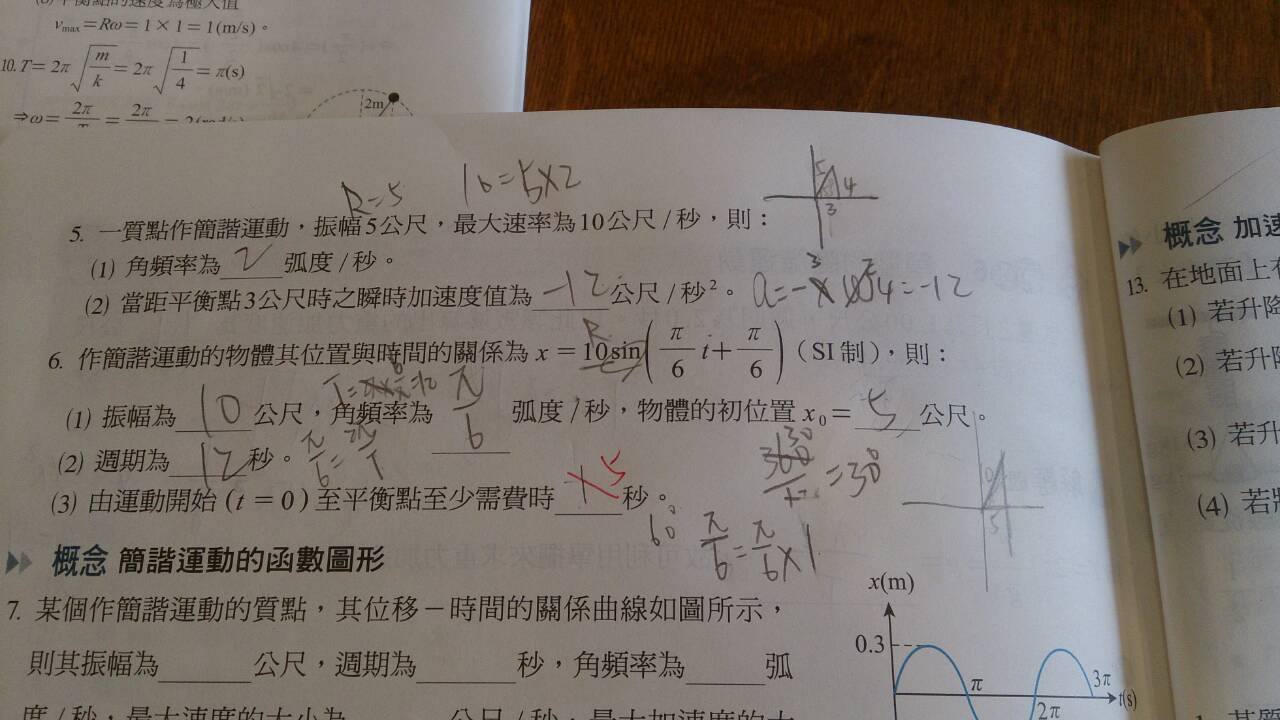 (3)平衡點的速度為極大值
vmax=Rω=1×1=1(m/s)。
10. T=2π√(m/k)=2π√(1/4)=π(s)
⇒ω=2π/T=2π/
2m
R=5
10=5×2
5 4
3
5. 一質點作簡諧運動,振幅5公尺,最大速率為10公尺/秒,則:
(1) 角頻率為 2 弧度/秒。
(2) 當距平衡點3公尺時之瞬時加速度值為 -12 公尺/秒²。
R
6. 作簡諧運動的物體其位置與時間的關係為 x=10sin(π/6 t+π/6)(SI制),則:
(1) 振幅為 10 公尺,角頻率為 π/6 弧度/秒,物體的初位置 x₀= 5 公尺。
(2) 週期為 12 秒。 π/6=2π/T
=30°
(3) 由運動開始(t=0)至平衡點至少需費時 5 秒。
60° π/6=π/6×1
概念 簡諧運動的函數圖形
7. 某個作簡諧運動的質點,其位移-時間的關係曲線如圖所示,
則其振幅為______公尺,週期為______秒,角頻率為______弧
度/秒,最大速度的大小為______公尺/秒,最大加速度的大
x(m)
0.3
π 2π 3π t(s)
概念 加速
13. 在地面上
(1) 若升降
(2) 若升
(3) 若升
(4) 若